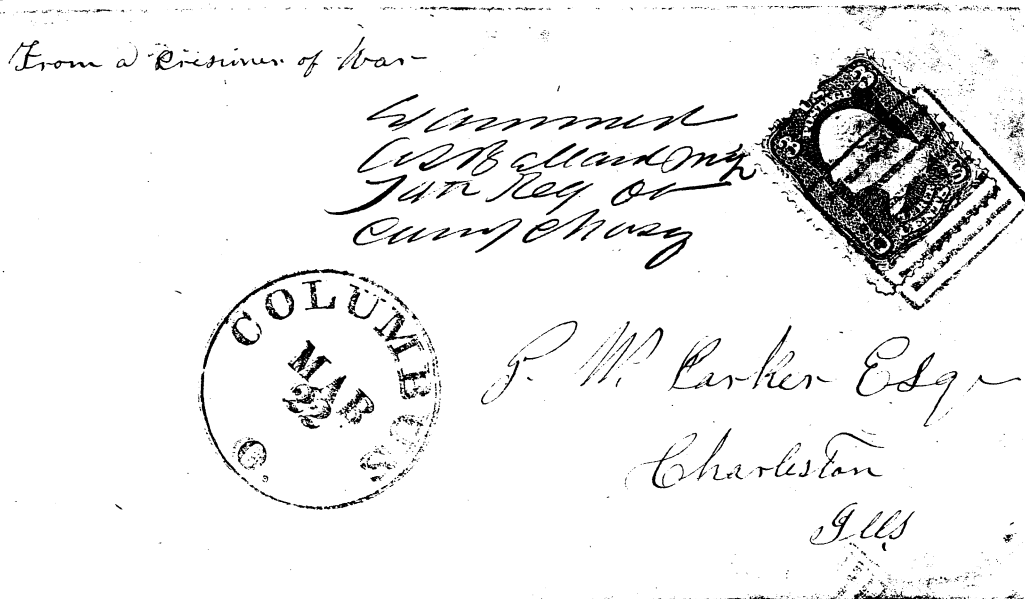 From a Prisoner of War
Examined
Ballard
Reg
Camp Chase
3 3
COLUMBUS. O.
MAR
P. W. Parker Esqr
Charleston
Ills